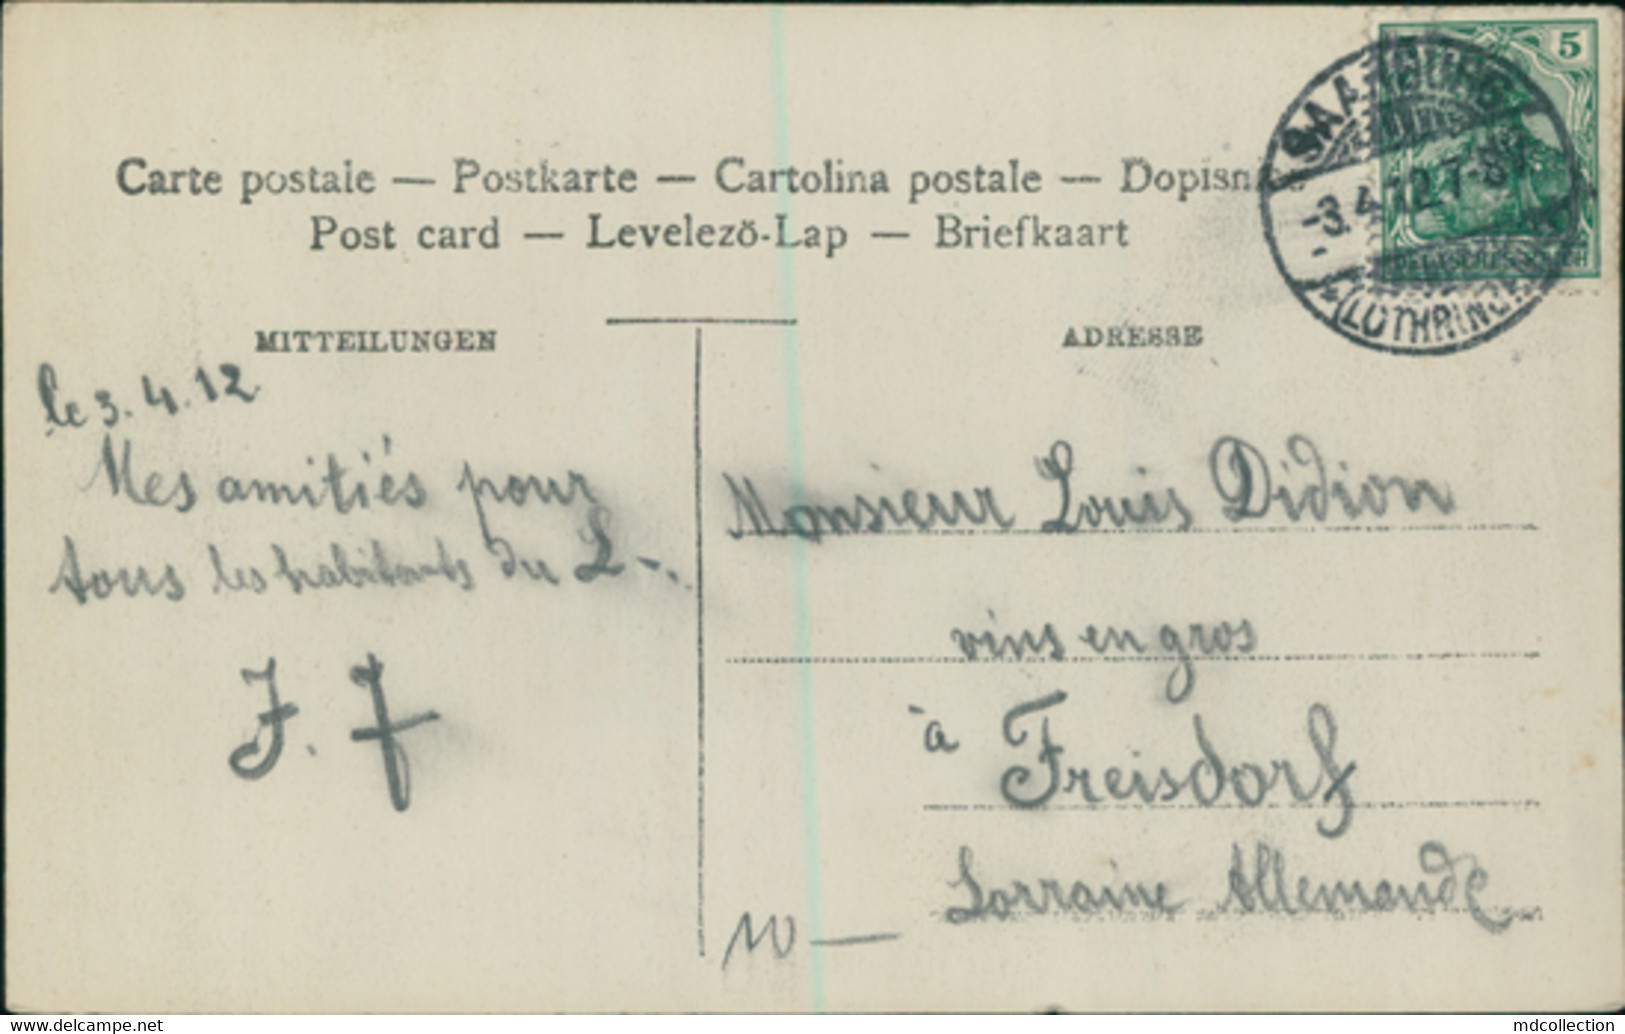 Carte postale — Postkarte — Cartolina postale — Dopisnice
Post card — Levelezö-Lap — Briefkaart
5
SAARBURG
-3.4.12.7-8V.
(LOTHRINGEN)
DEUTSCHES REICH
MITTEILUNGEN
ADRESSE
le 3.4.12
Mes amitiés pour
tous les habitants du L-.
J. J
Monsieur Louis Didion
vins en gros
à Freisdorf
Lorraine Allemande
www.delcampe.net
mdcollection